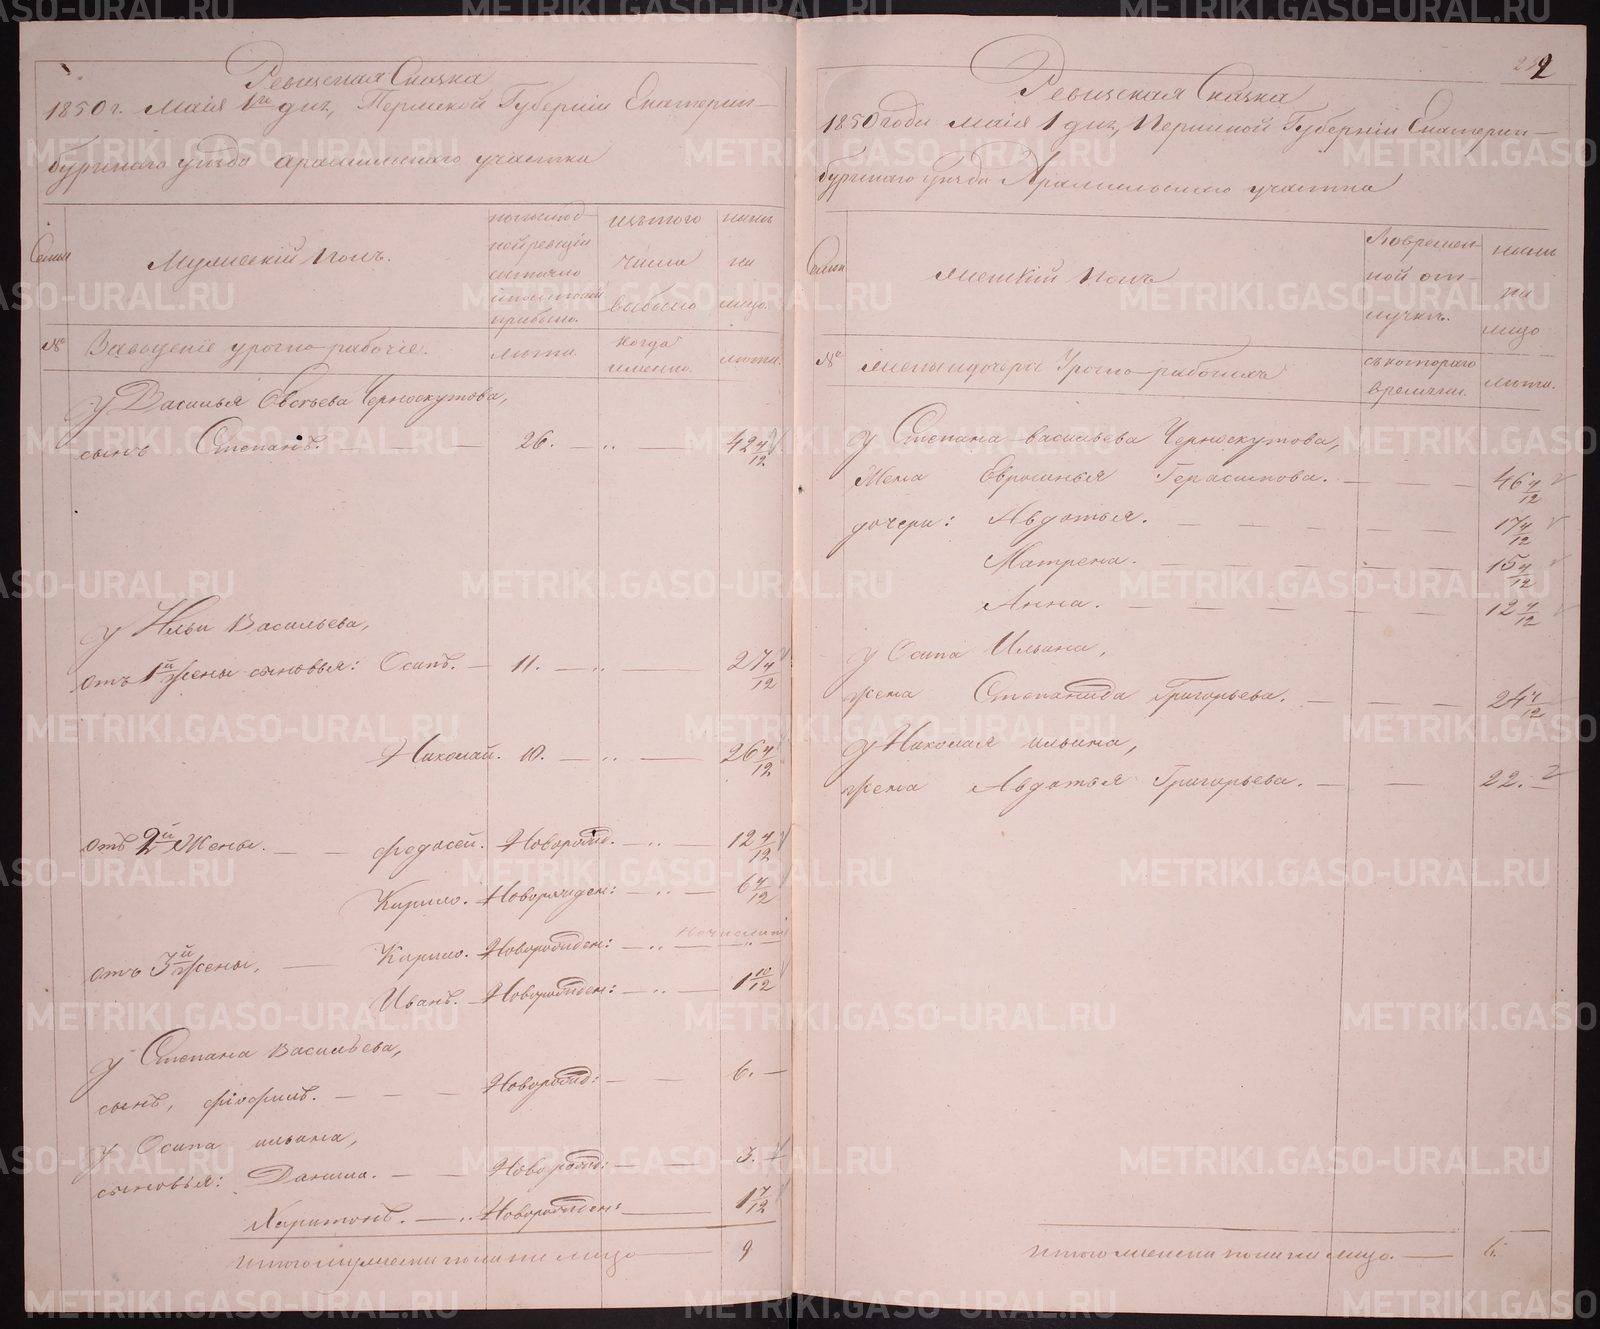 Ревизская Сказка
1850 г. Маія 1го дня, Пермской Губерніи Екатерин-
бургскаго уезда Арамильскаго участка
Семьи
Мужескій полъ.
по последней ревизіи состояло и после того прибыло.
изъ того числа выбыло
ныне на лицо.
№
Заводскіе урочно-рабочіе.
лета.
когда именно.
лета.
У Василья Евсеева Черноскутова,
сынъ Степанъ. 26. 42 4/12
У Ильи Васильева,
отъ 1й жены сыновья: Осипъ. 11. 27 4/12
Николай. 10. 26 4/12
отъ 2й жены. Федосей. Новорожд. 12 4/12
Кирило. Новорожден: 6 4/12
отъ 3й жены, Кирило. Новорожден:
Иванъ. Новорожден: 1 10/12
У Степана Васильева,
сынъ, Фіофилъ. Новорожд: 6.
У Осипа Ильина,
сыновья: Данила. Новорожд: 3.
Харитонъ. Новорожден: 1 7/12
Итого мужеска пола на лицо 9
2
Ревизская Сказка
1850 года Маія 1 дня, Пермской Губерніи Екатерин-
бургскаго уезда Арамильскаго участка
Семьи
Женскій полъ
Во временной отлучке.
ныне на лицо
№
Жены и дочери Урочно-рабочихъ
съ котораго времени.
лета.
У Степана Васильева Черноскутова,
Жена Евросинья Герасимова. 46 4/12
дочери: Авдотья. 17 4/12
Матрена. 15 4/12
Анна. 12 4/12
У Осипа Ильина,
жена Степанида Григорьева. 24 4/12
У Николая Ильина,
жена Авдотья Григорьева. 22.
Итого женска пола на лицо. 6.
METRIKI.GASO-URAL.RU